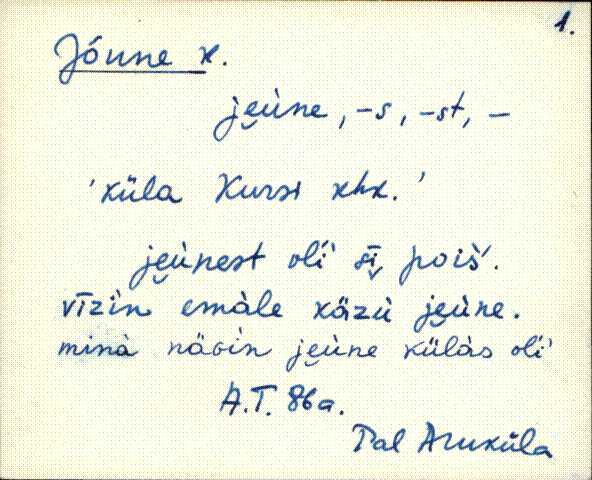 1.
Jóune k.
je̮ùne, -s, -st, -
'küla Kursi khk.'
je̮ùnest oĺi sī̮ poiš́.
vīzìn emàle käzù je̮ùne.
minà nävìn je̮ùne külàs oĺi
A.T. 86a.
Pal Aruküla